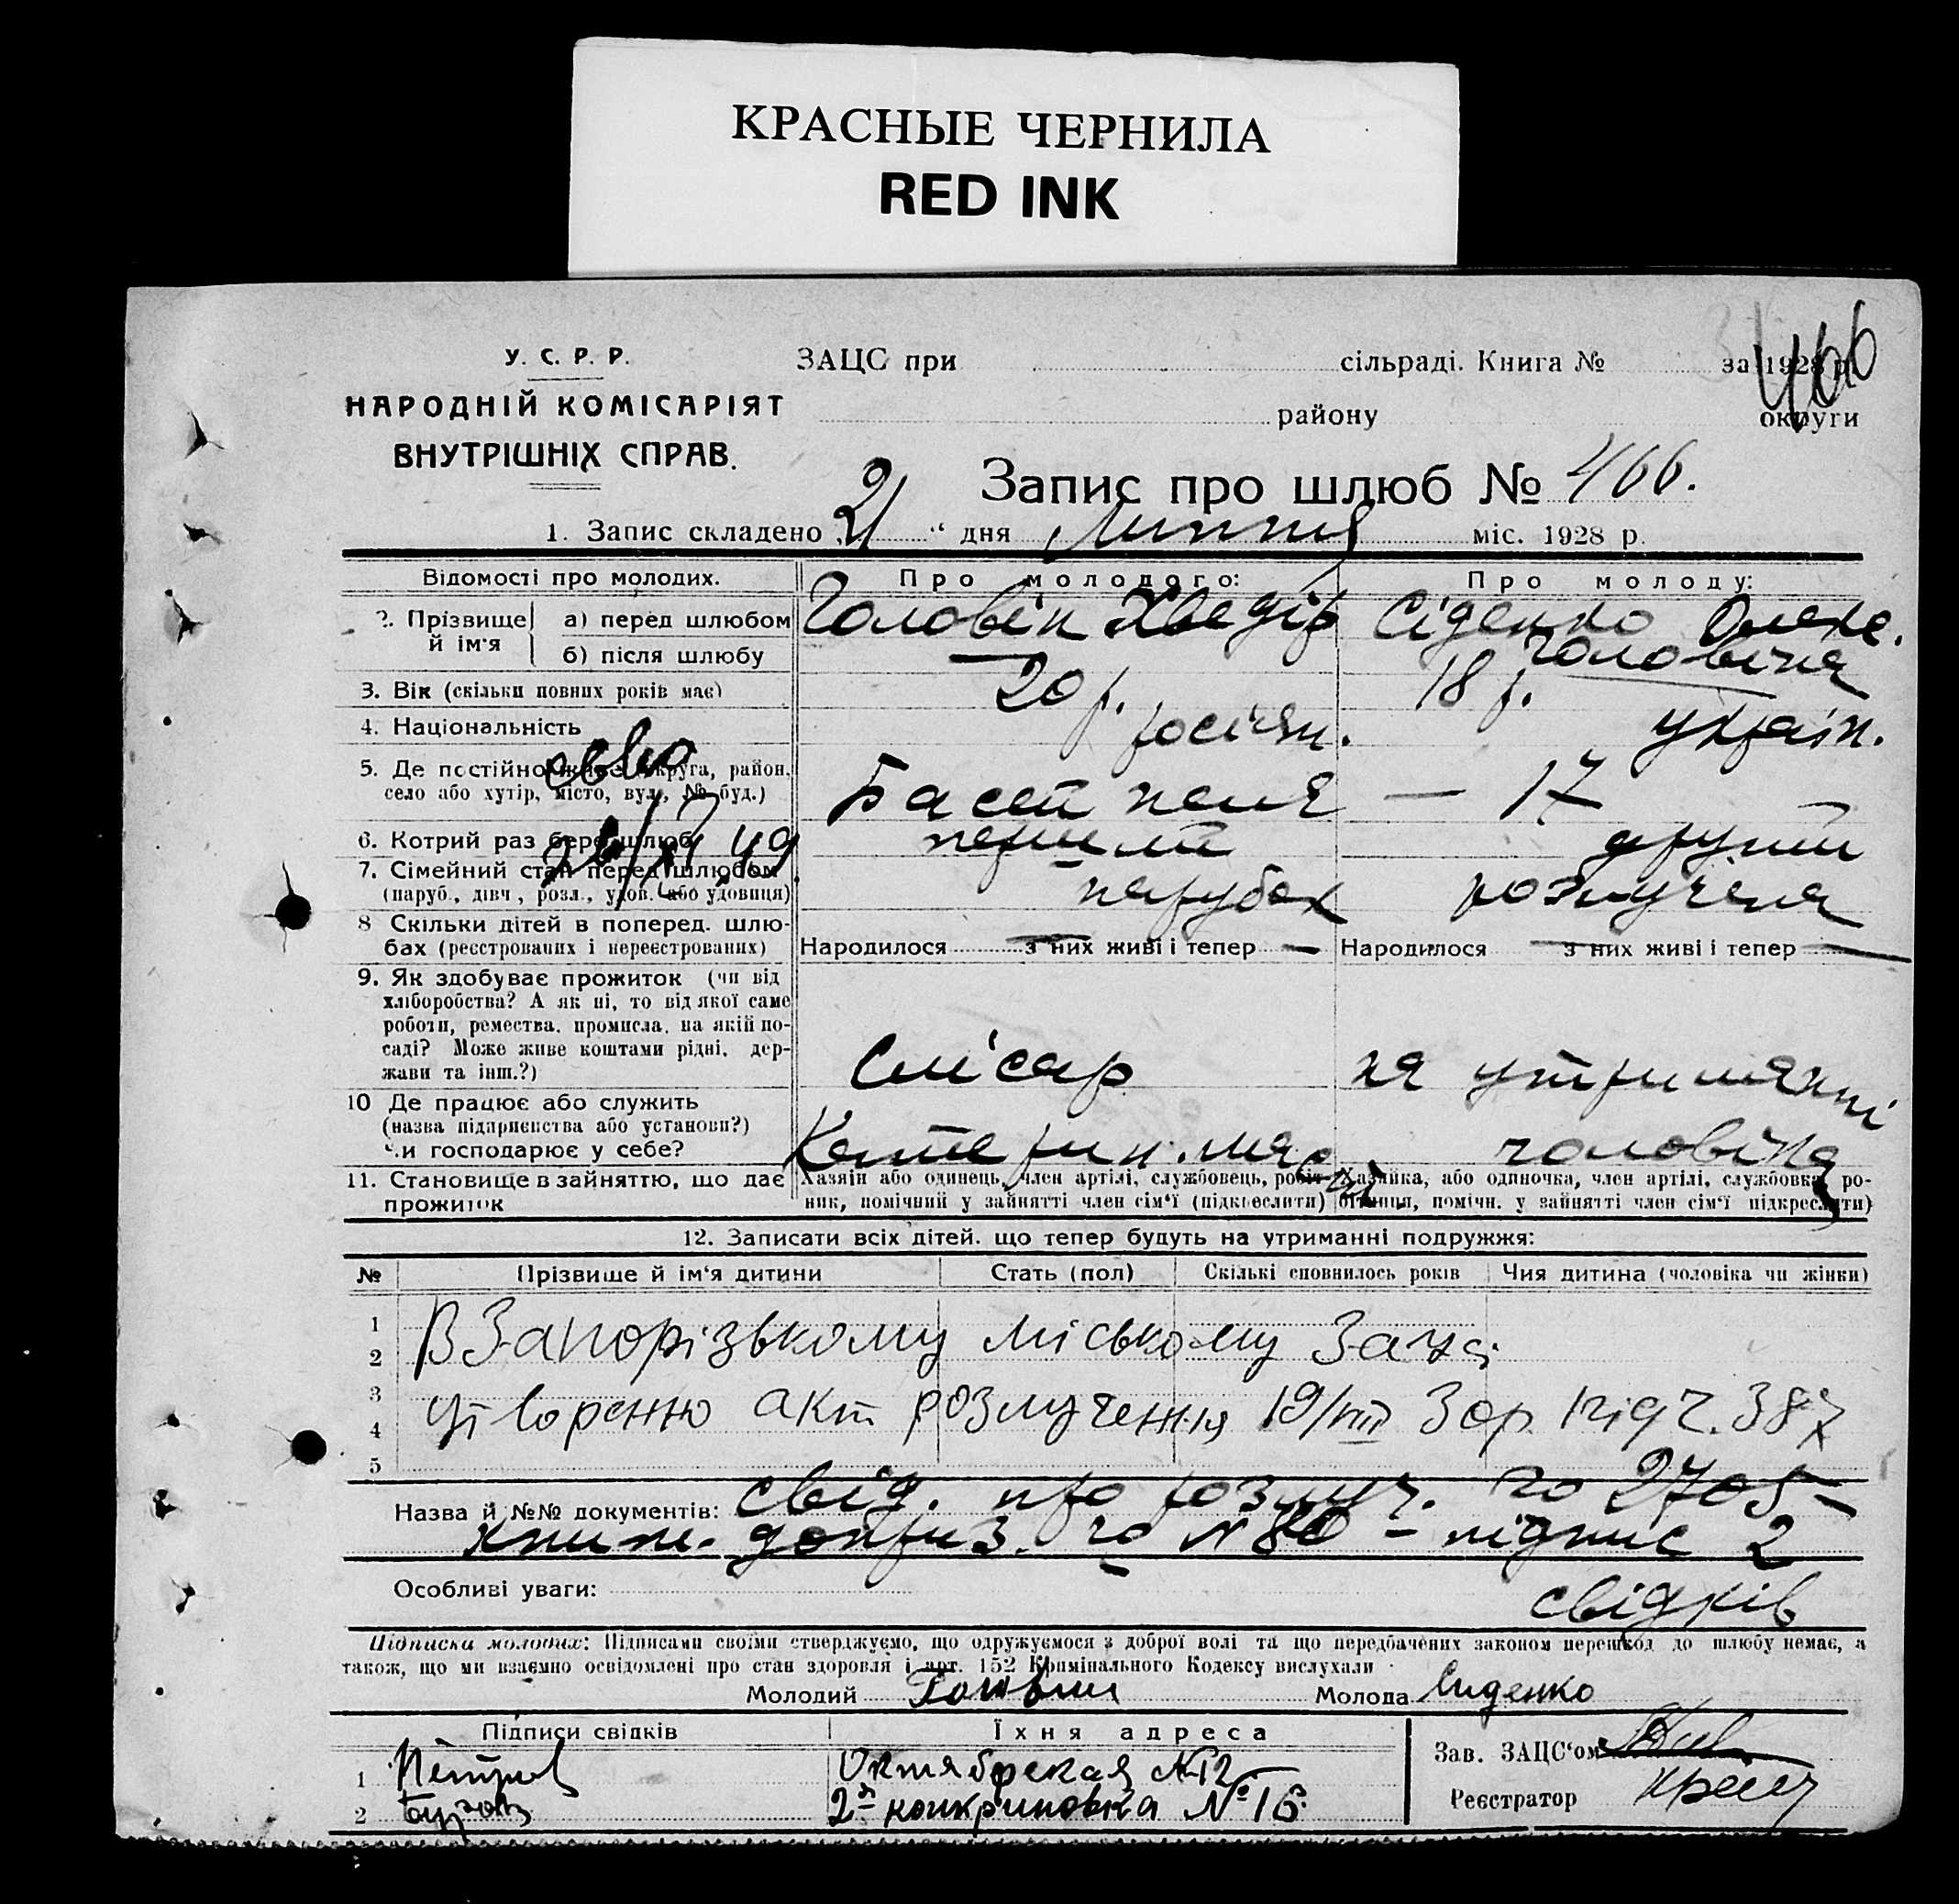 КРАСНЫЕ ЧЕРНИЛА
RED INK
466
У. С. Р. Р.
НАРОДНІЙ КОМІСАРІЯТ
ВНУТРІШНІХ СПРАВ.
ЗАЦС при сільраді. Книга № за 1928 р.
району округи
Запис про шлюб № 466.
1. Запис складено „21“ дня Липня міс. 1928 р.
Відомості про молодих. Про молодого: Про молоду:
2. Прізвище й ім'я
а) перед шлюбом Головін Хведір Сіденко Олекс.
б) після шлюбу Головіна
3. Вік (скільки повних років має) 20 р. 18 р.
4. Національність росіян. україн.
5. Де постійно живе (округа, район, село або хутір, місто, вул., № буд.) — 17
6. Котрий раз бере шлюб перший другий
7. Сімейний стан перед шлюбом
(паруб., дівч., розл., удов. або удовиця) парубок розлучена
8 Скільки дітей в поперед. шлюбах (реєстрованих і нереєстрованих) Народилося — з них живі і тепер — Народилося — з них живі і тепер —
9. Як здобуває прожиток (чи від
хліборобства? А як ні, то від якої саме
роботи, ремества, промисла, на якій по-
саді? Може живе коштами рідні, дер-
жави та інш.?) Слісар на утриманні
10 Де працює або служить
(назва підприємства або установи?)
Чи господарює у себе? Катерин. чоловіка
11. Становище в зайняттю, що дає прожиток
Хазяїн або одинець, член артілі, службовець, робіт-
ник, помічний у зайнятті член сім'ї (підкреслити)
Хазяйка, або одиночка, член артілі, службовка, ро-
бітниця, помічн. у зайнятті член сім'ї підкреслити)
12. Записати всіх дітей, що тепер будуть на утриманні подружжя:
№ Прізвище й ім'я дитини Стать (пол) Скількі сповнилось років Чия дитина (чоловіка чи жінки)
1
2 В Запорізькому міському Загсі
3
4 утворенно акт розлучення 19/VIII 30р. під ч. 387
5
Назва й №№ документів: свід. про розлуч. 2705 —
книж. доприз. № 80 — підпис 2
Особливі уваги: свідків
Підписка молодих: Підписами своїми стверджуємо, що одружуємося з доброї волі та що передбачених законом перешкод до шлюбу немає, а
також, що ми взаємно освідомлені про стан здоровля і арт. 152 Кримінального Кодексу вислухали
Молодий Головин Молода Сиденко
Підписи свідків Їхня адреса
1 Петров Октябрская №12
2 №16
Зав. ЗАЦС'ом
Реєстратор